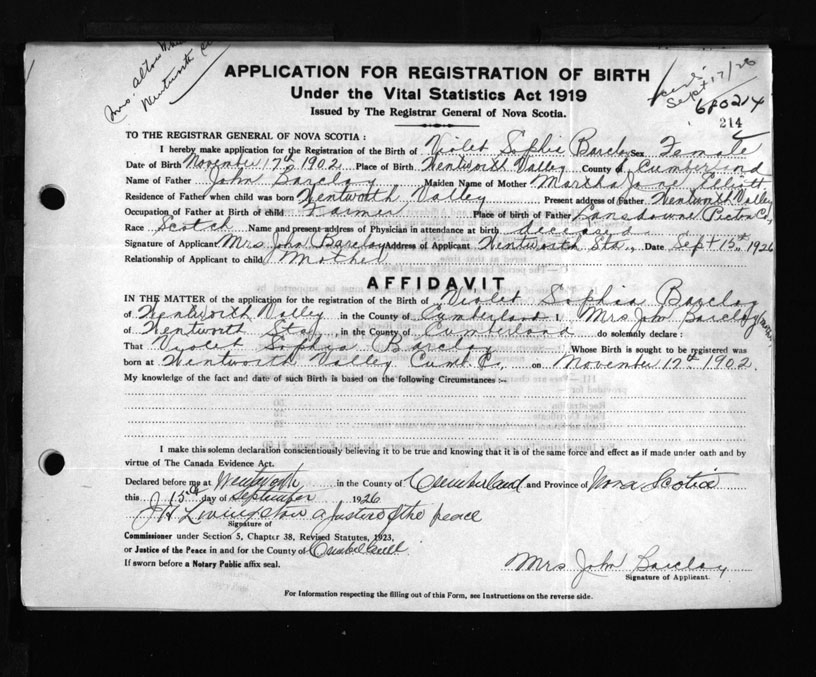 Mrs. Alton
Wentworth
APPLICATION FOR REGISTRATION OF BIRTH
Under the Vital Statistics Act 1919
Issued by The Registrar General of Nova Scotia.
Sept 17/26
680214
214
TO THE REGISTRAR GENERAL OF NOVA SCOTIA :
I hereby make application for the Registration of the Birth of Violet Sophia Barclay Sex Female
Date of Birth November 17th 1902 Place of Birth Wentworth Valley County of Cumberland
Name of Father John Barclay Maiden Name of Mother Martha Jane Elliott
Residence of Father when child was born Wentworth Valley Present address of Father Wentworth Valley
Occupation of Father at Birth of child Farmer Place of birth of Father Lansdowne Pictou Co.,
Race Scotch Name and present address of Physician in attendance at birth deceased
Signature of Applicant Mrs. John Barclay Address of Applicant Wentworth Sta., Date Sept 15th 1926
Relationship of Applicant to child Mother
AFFIDAVIT
IN THE MATTER of the application for the registration of the Birth of Violet Sophia Barclay
of Wentworth Valley in the County of Cumberland I, Mrs John Barclay (mother)
of Wentworth Sta., in the County of Cumberland do solemnly declare :
That Violet Sophia Barclay Whose Birth is sought to be registered was
born at Wentworth Valley Cumb. Co., on November 17th 1902.
My knowledge of the fact and date of such Birth is based on the following Circumstances :--
I make this solemn declaration conscientiously believing it to be true and knowing that it is of the same force and effect as if made under oath and by
virtue of The Canada Evidence Act.
Declared before me at Wentworth in the County of Cumberland and Province of Nova Scotia
this 15th day of September 1926
J H Livingston a Justice of the peace
Signature of
Commissioner under Section 5, Chapter 38, Revised Statutes, 1923,
or Justice of the Peace in and for the County of Cumberland
If sworn before a Notary Public affix seal.
Mrs John Barclay
Signature of Applicant.
For Information respecting the filling out of this Form, see Instructions on the reverse side.